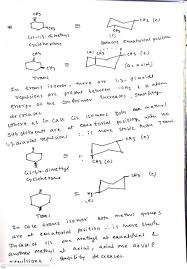 CH3
CH3 (e)
CH3
Cis-1,3-dimethyl
cyclohexane
(e)
Because equatorial position
CH3
CH3 (e)
CH3
(a)
Trans
In trans isomer, there are 1,3-diaxial
repulsions are present between -CH3 & H atom
energy of the conformer increases, stability
decreases.
where as in case cis isomer both
substituent are at equatorial position, with no
1,3-diaxial repulsions ∴ is more stable than trans
CH3
CH3
cyclohexane
CH3
Trans
In case trans isomer both methyl groups
are at equatorial position ∴ is more stable
In case of cis one methyl at equatorial &
another methyl at axial, axial one
repulsions ∴ stability decreases.